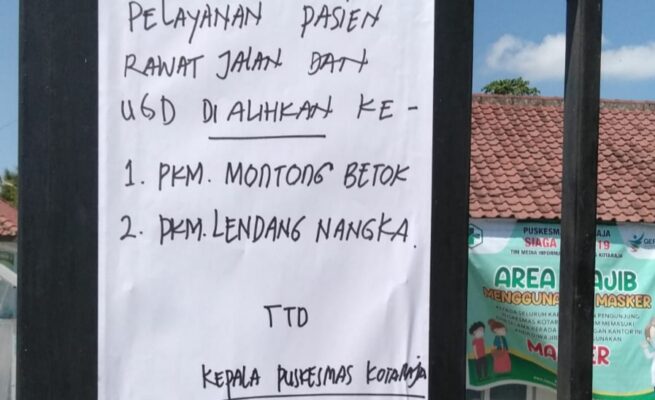 PELAYANAN PASIEN
RAWAT JALAN DAN
UGD DIALIHKAN KE -
1. PKM. MONTONG BETOK
2. PKM. LENDANG NANGKA.
TTD
KEPALA PUSKESMAS KOTARAJA
PUSKESM
SIAGA 19
TIM MEDIA INFORM KOTARAJA
AREA JIB
MENGGUNA MASKER
MA ER